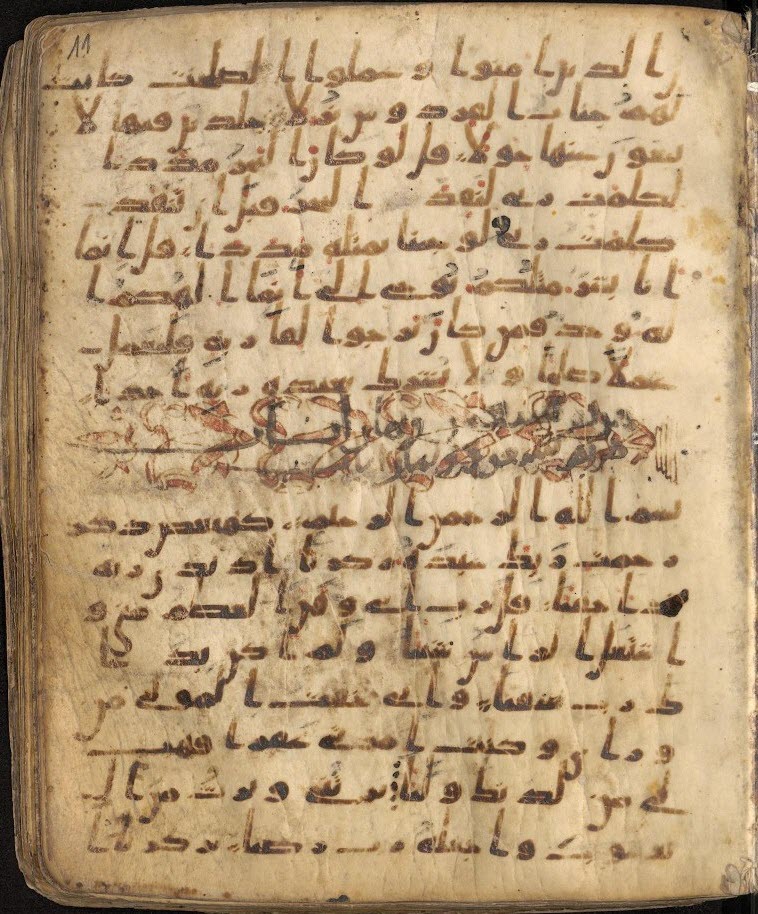 ا لذين امنوا و عملوا ا لصلحت كانت
لهم جنات ا لفردوس نزلا خلدين فيها لا
يبغون عنها حولا قل لو كان ا لبحر مددا
لكلمت ربي لنفد ا لبحر قبل ان تنفد
كلمت ربي ولو جينا بمثله مددا قل انما
ا نا بشر مثلكم يوحى الي انما ا لهكم ا
له وحد فمن كان يرجوا لقا ربه فليعمل
عملا صلحا و لا يشرك بعبده ربه احدا
بسم ا لله ا لرحمن ا لرحيم كهيعص ذكر
رحمت ربك عبده زكريا اذ ندى ربه
ندا خفيا قل رب اني وهن ا لعظم مني و
ا شتعل ا لراس شيبا و لم اكن بدعا
ك رب شقيا و اني خفت ا لمولي من
و راي و كنت امراتي عقرا فهب
لي من لدنك وليا يرثني و يرث من ال
يعقوب و اجعله رب رضيا يزكريا